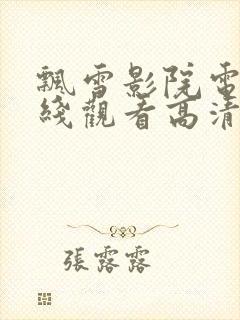 飄雪影院電
綫觀看高清
張露露